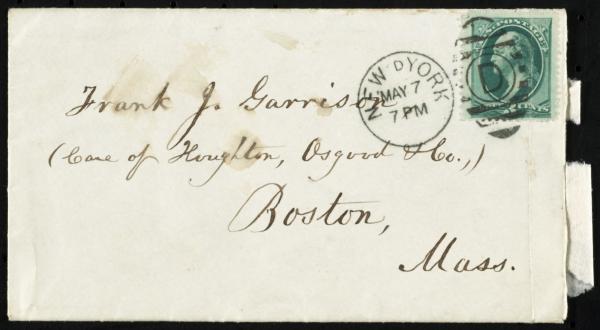 U.S. POSTAGE
NEW YORK
D
MAY 7
7 PM
D
Frank J. Garrison
(Care of Houghton, Osgood & Co.,)
Boston,
Mass.